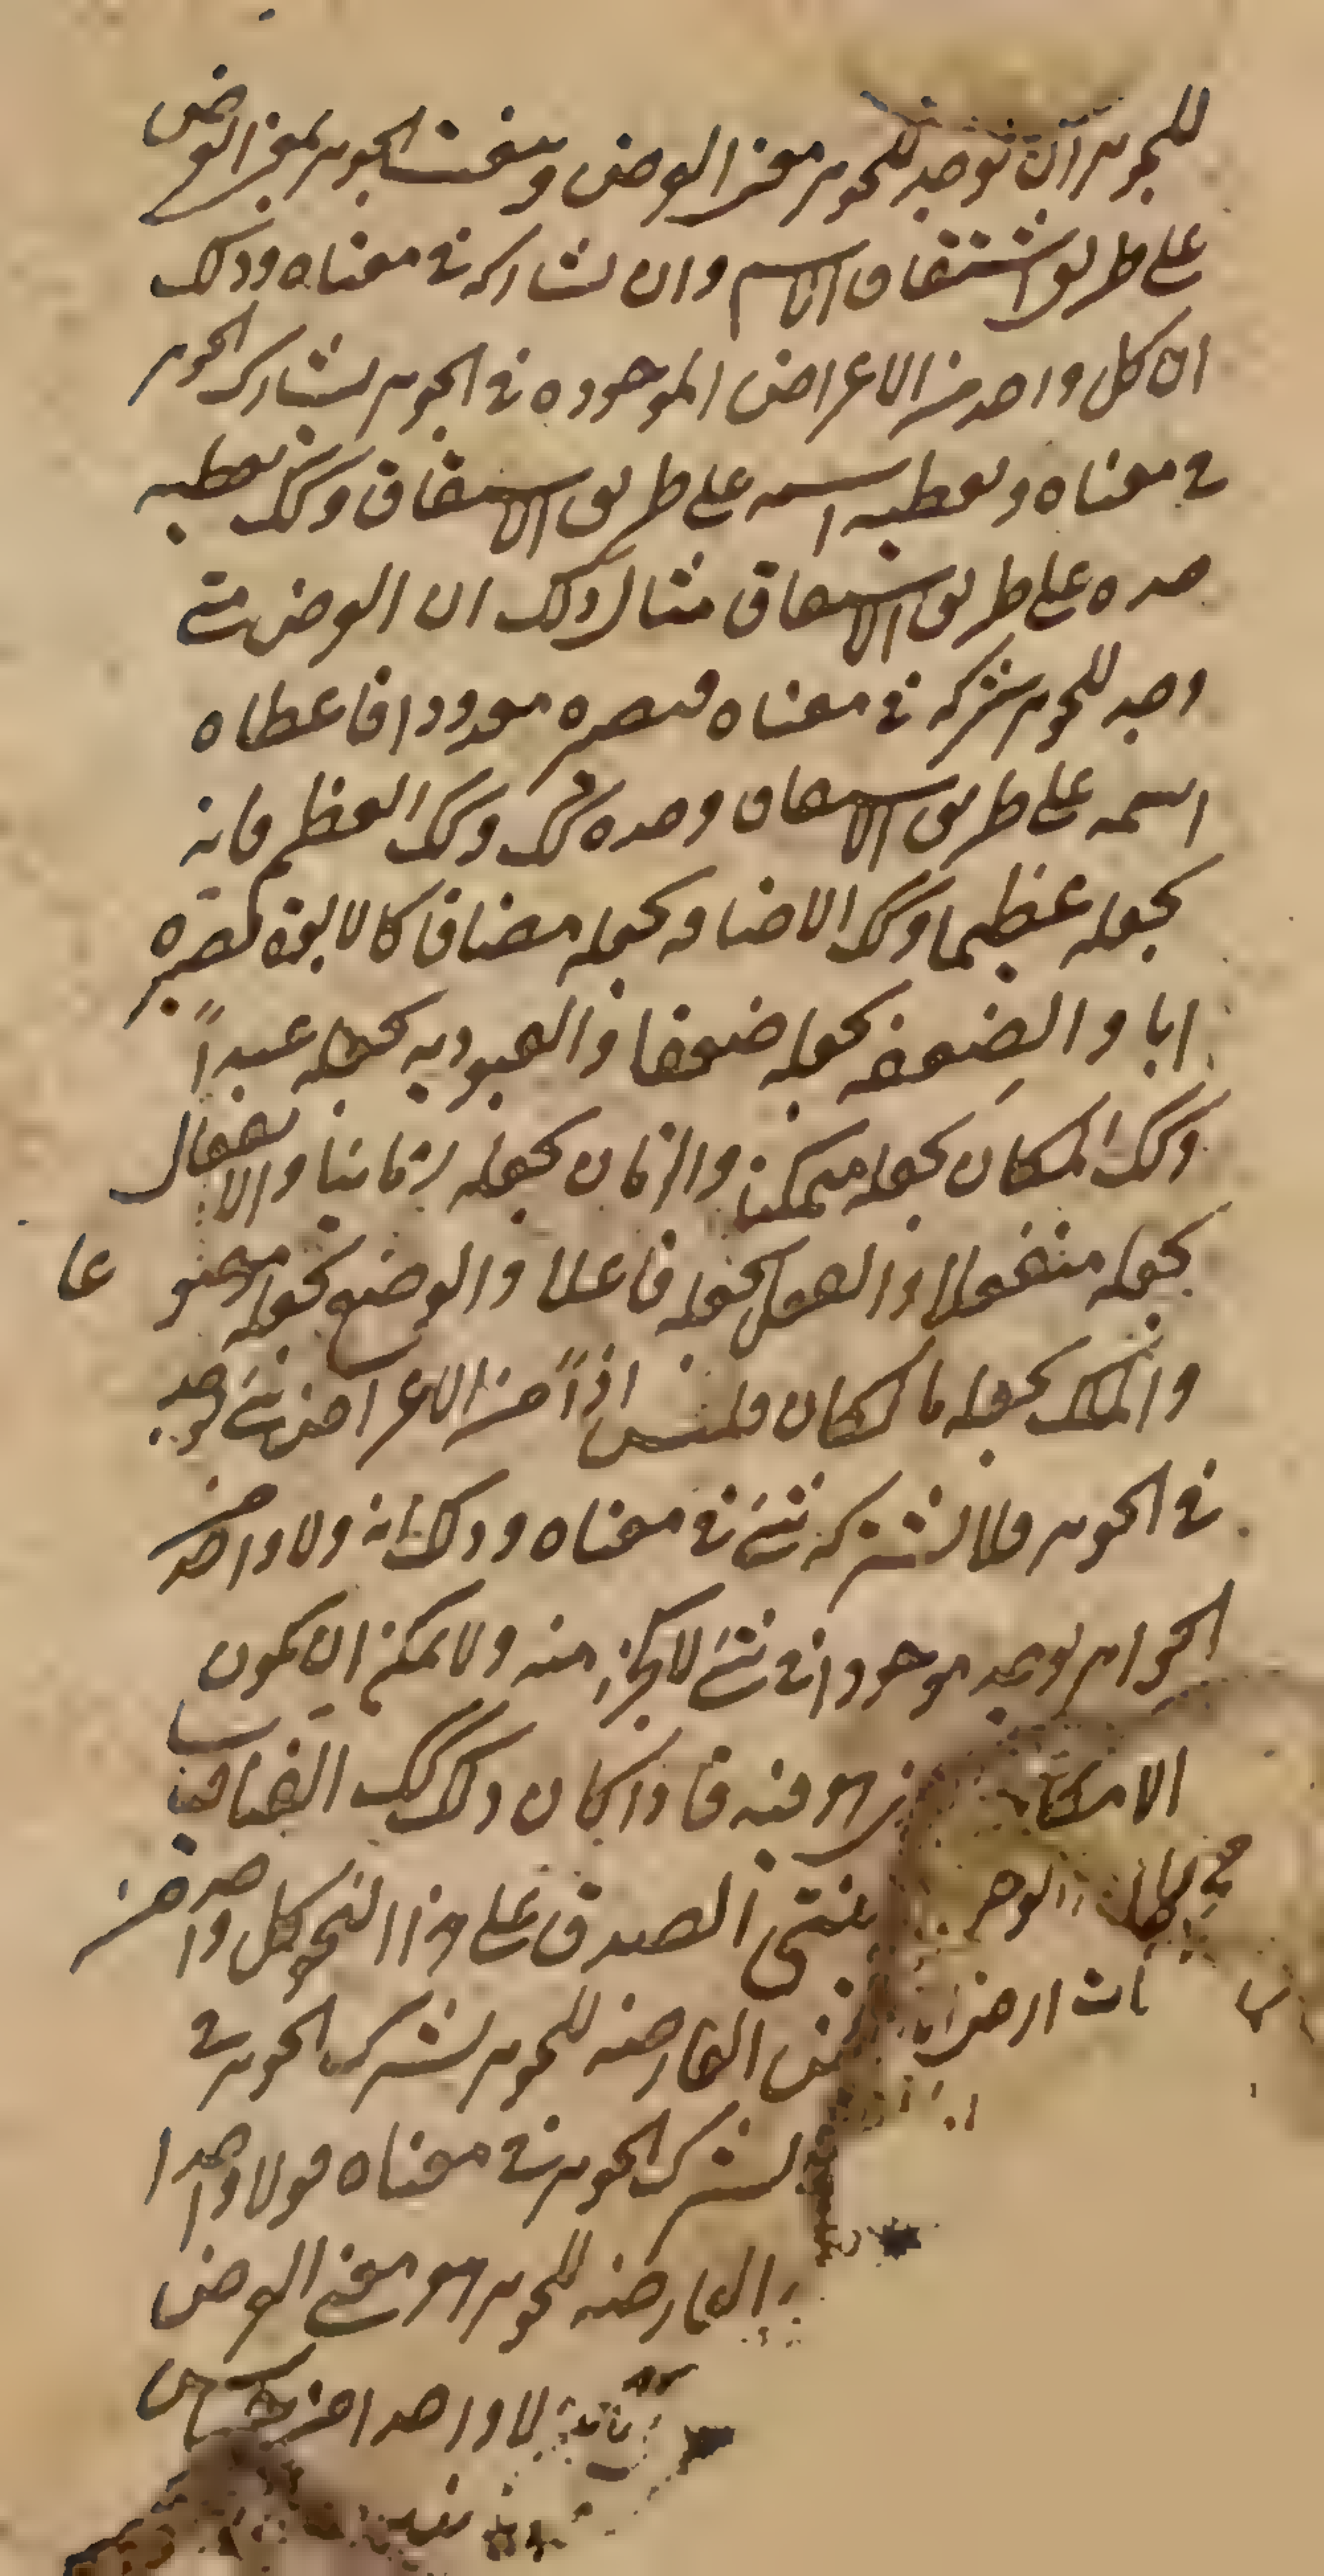 للجوهر آن توجد للجوهر معنى العرض وينعت الجوهر بمعنى العرض
على طريق اشتقاق الاسم وان تشاركه في معناه وذلك
ان كل واحد من الاعراض الموجوده في الجوهر يشارك الجوهر
في معناه ويعطيه اسمه على طريق الاشتقاق وكذلك يعطيه
حده على طريق الاشتقاق مثال ذلك ان العرض متى
وجد للجوهر شركه في معناه فيصيره معدودا فاعطاه
اسمه على طريق الاشتقاق وحده كذلك وكذلك العظم فانه
يجعله عظيما وكذلك الاضافه يجعله مضافا كالابوة تصيره
ابا والضعف يجعله ضعفا والعبوديه يجعله عبداً
وكذلك المكان يجعله متمكنا والزمان يجعله زمانيا والانفعال
يجعله منفعلا والفعل يجعله فاعلا والوضع يجعله موضو عا
والملك يجعله مالكا فليس اذاً من الاعراض شئ يوجد
في الجوهر ولا يشركه شئ في معناه وذلك انه ولا واحد من
الجواهر يوجد موجودا في شئ لا كجزء منه ولا يمكن ان يكون
هو فيه فاذا كان ذلك كذلك
الصدق على هذا النحو كل واحد من
العارضه للجوهر يشرك الجوهر في
يشرك الجوهر في معناه فولا واحدا
العارضه للجوهر هو معنى العرض
لا واحدا من